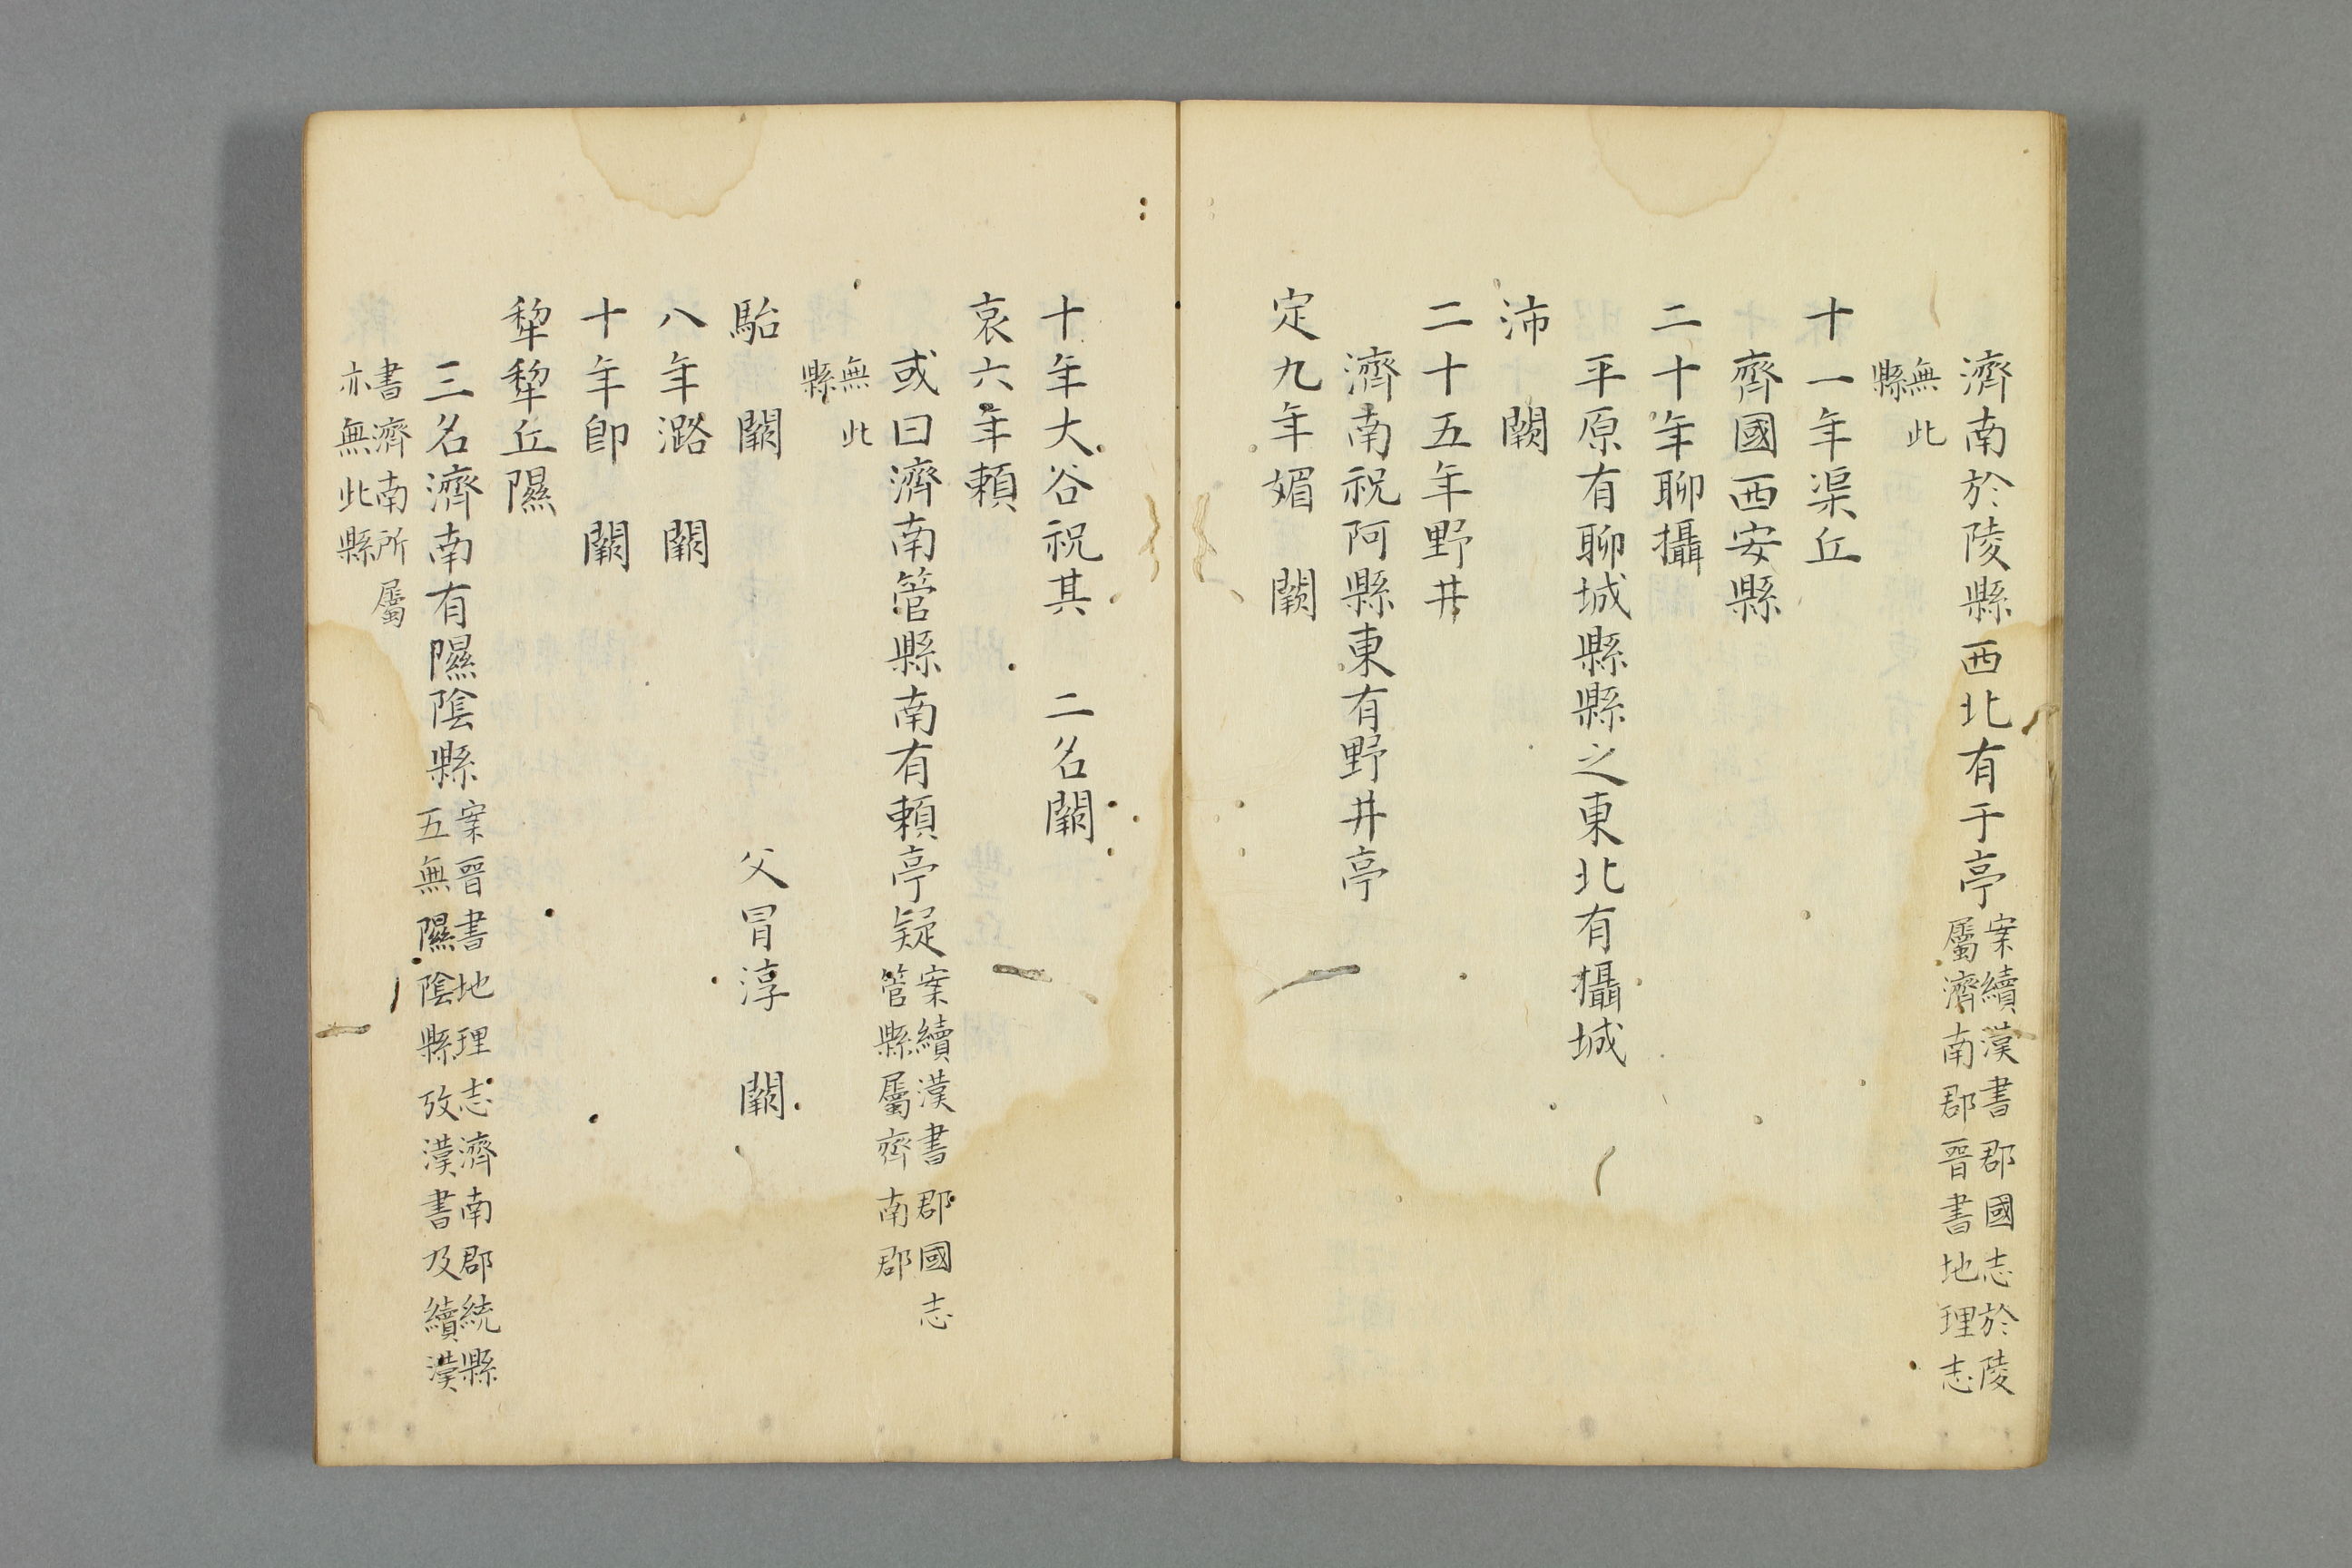 濟南於陵縣西北有于亭案續漢書郡國志於陵
屬濟南郡晉書地理志
無此
縣
十一年渠丘
齊國西安縣
二十年聊攝
平原有聊城縣縣之東北有攝城
沛 闕
二十五年野井
濟南祝阿縣東有野井亭
定九年媚 闕
十年大谷祝其 二名闕
哀六年賴
或曰濟南管縣南有賴亭疑案續漢書郡國志
管縣屬齊南郡
無此
縣
駘 闕 父冒淳 闕
八年潞 闕
十年卽 闕
犂犂丘隰
三名濟南有隰陰縣案晉書地理志濟南郡統縣
五無隰陰縣攷漢書及續漢
書濟南所屬
亦無此縣